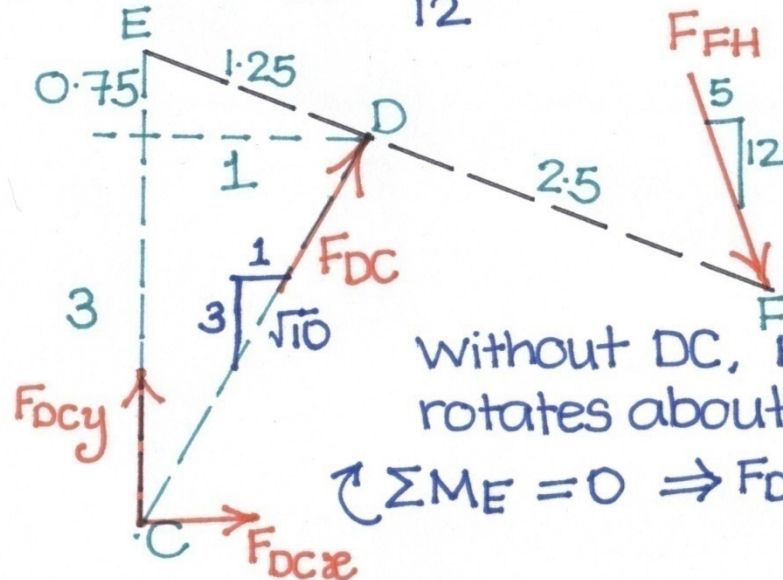 12
E
F FH
0.75
1.25
5
D
12
1
2.5
1
F DC
3
3
√10
F
without DC,
rotates about
F DCy
↻ΣM E = 0 ⇒ F D
C
F DCx